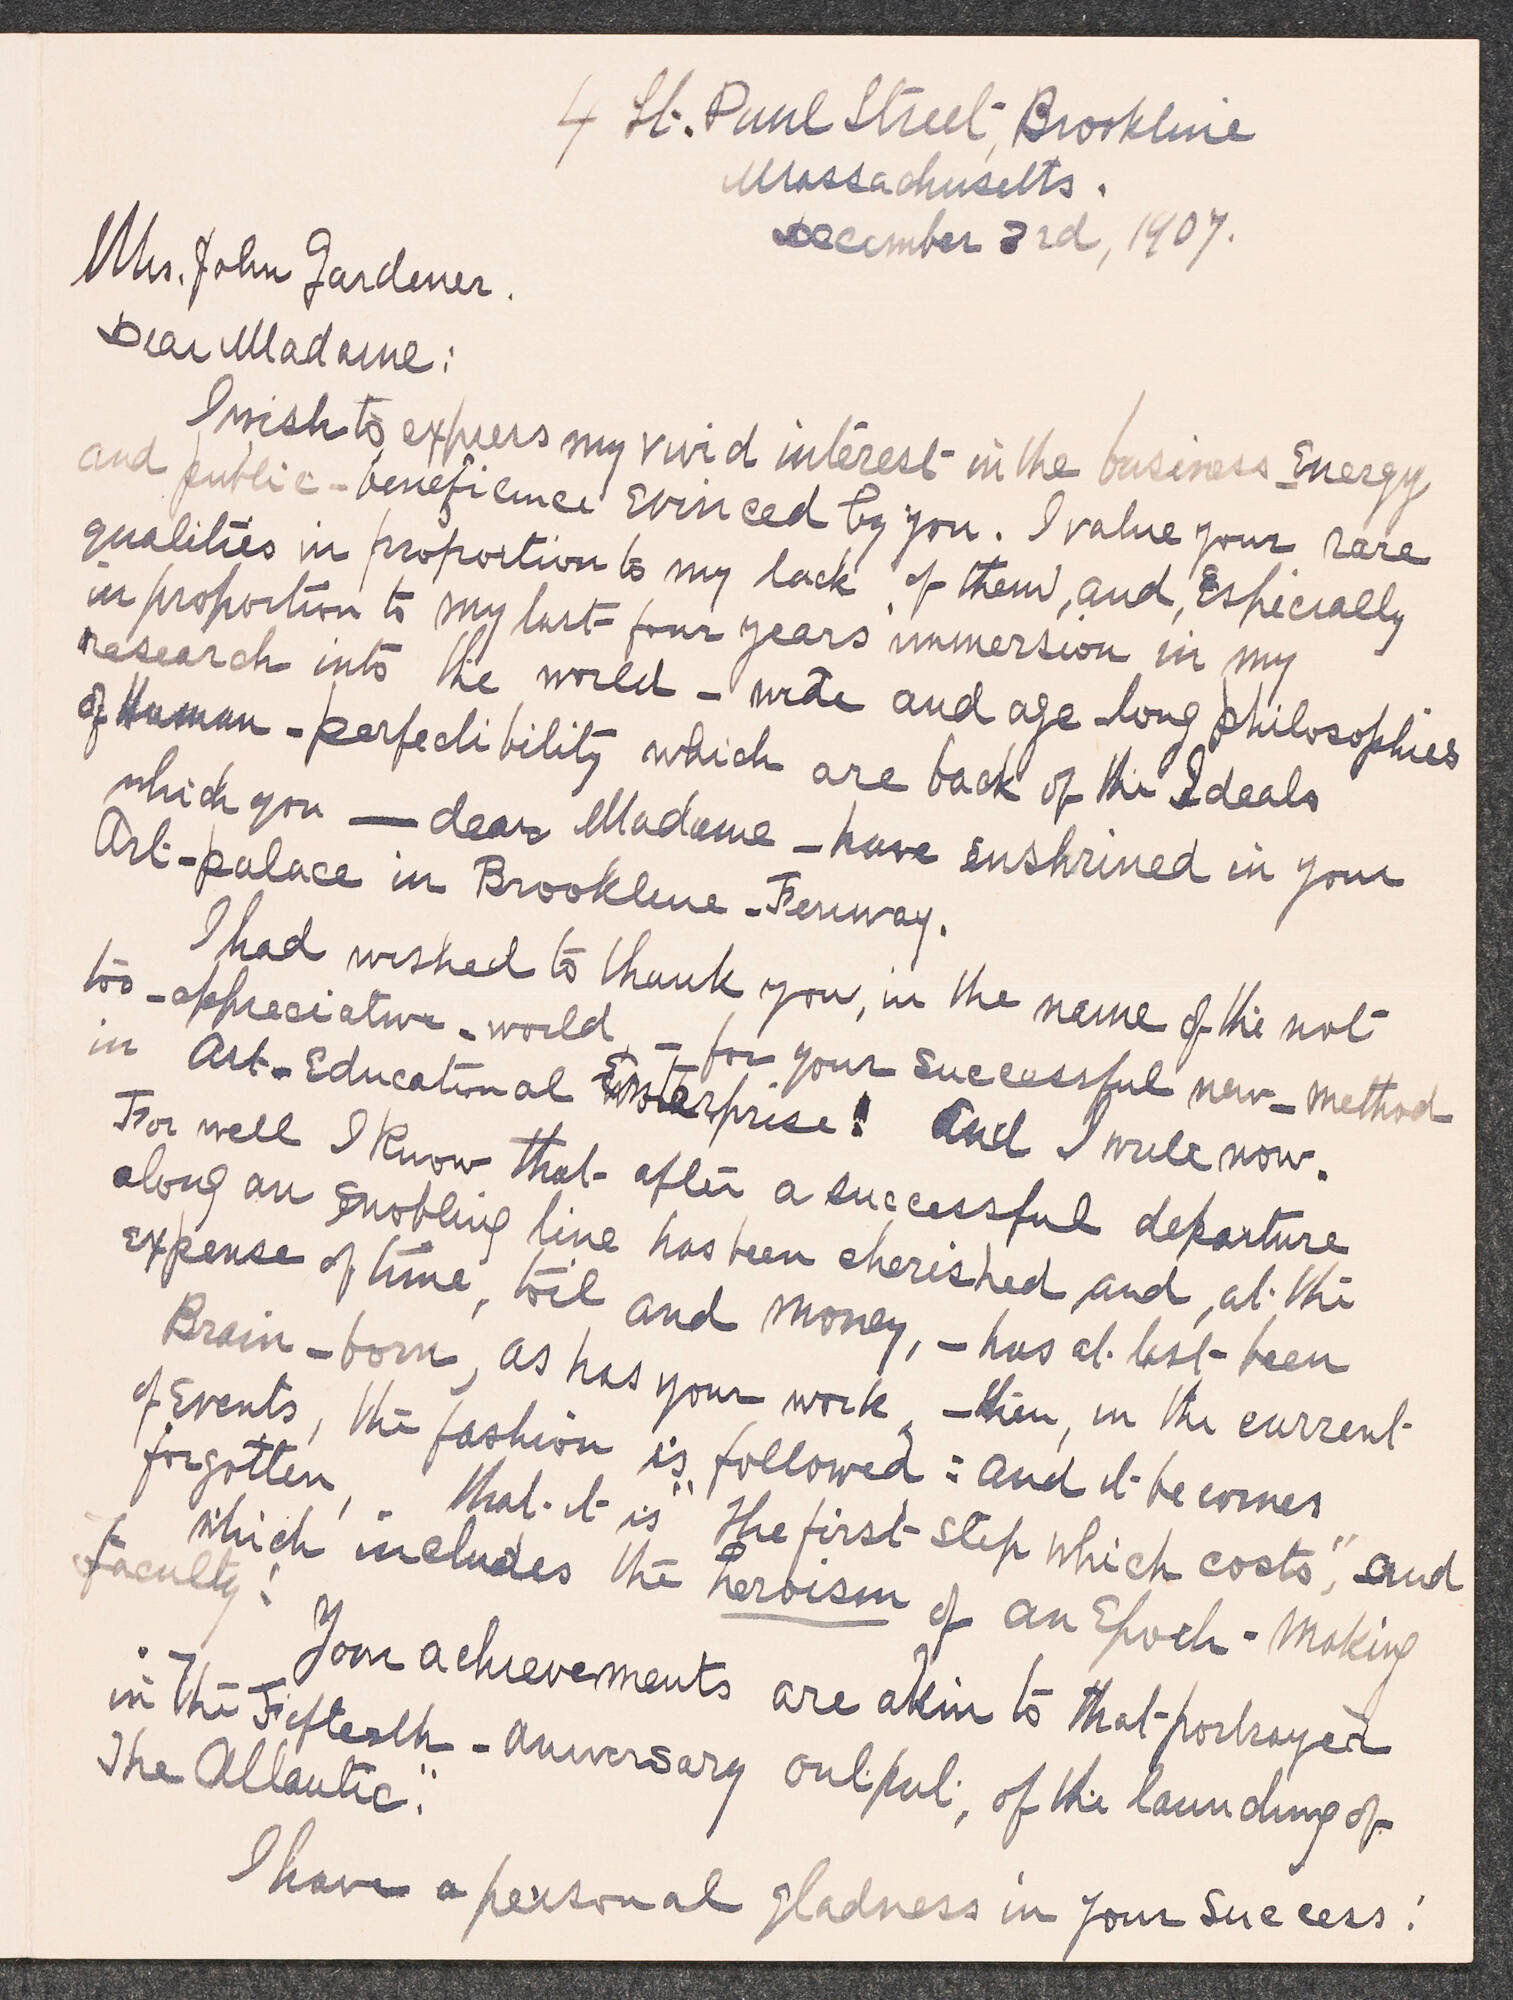 4 St. Paul Street, Brookline
Massachusetts.
December 3rd, 1907.
Mrs. John Gardener.
Dear Madame:
I wish to express my vivid interest in the business Energy
and public-beneficence Evinced by you. I value your rare
qualities in proportion to my lack of them, and, Especially
in proportion to my last four years immersion in my
research into the world-wide and age-long philosophies
of Human-perfectibility which are back of the Ideals
which you — dear Madame - have enshrined in your
Art-palace in Brookline-Fenway.
I had wished to thank you, in the name of the not
too-appreciative-world - for your successful new-method
in Art-Educational Enterprise! And I write now.
For well I know that after a successful departure
along an Enobling line has been cherished and, at the
Expense of time, toil and money, - has at last been
Brain-born, as has your work, - then, in the current
of Events, the fashion is followed: and it becomes
forgotten, - that it is "the first step which costs," and
which includes the heroism of an Epoch-making
Faculty!
Your achievements are akin to that portrayed
in "The Fiftieth-Aniversary output, of the launching of
The Atlantic".
I have a personal gladness in your success!